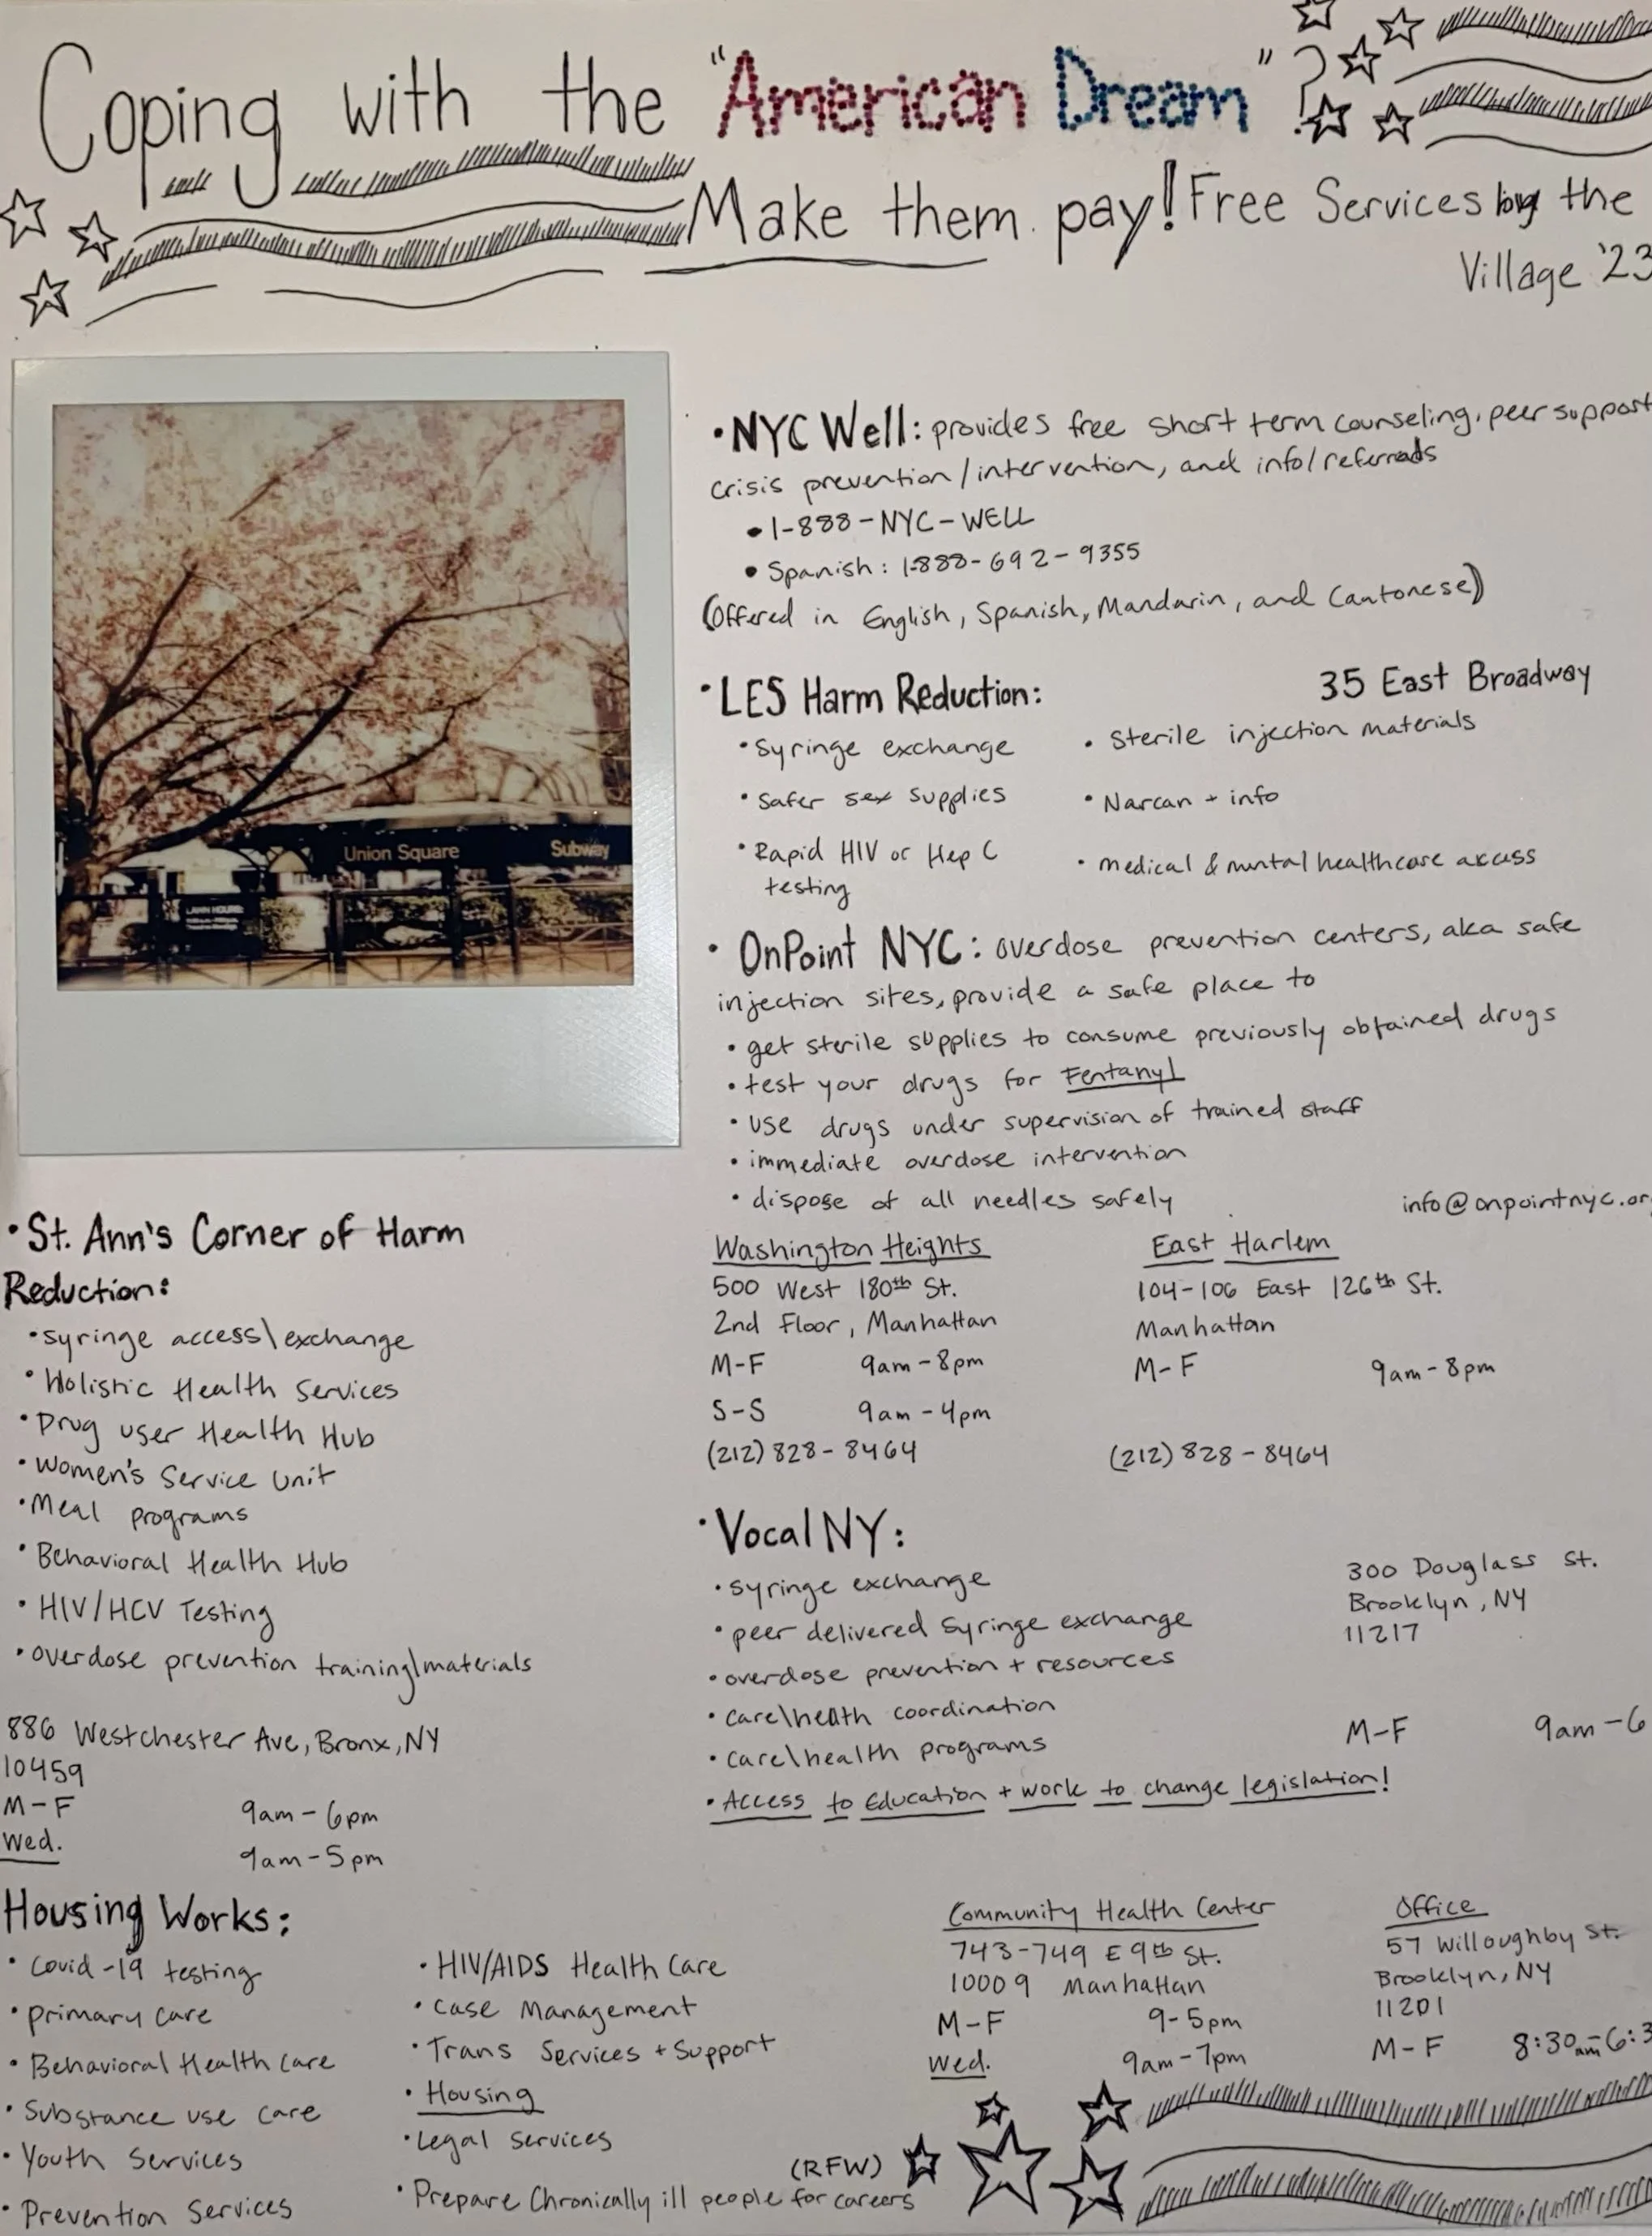 Coping with the "American Dream"?
Make them pay! Free Services by the
Village '23
Union Square Subway
• NYC Well: provides free short term counseling, peer support
crisis prevention/intervention, and info/referrals
• 1-888-NYC-WELL
• Spanish: 1-888-692-9355
(Offered in English, Spanish, Mandarin, and Cantonese)
• LES Harm Reduction: 35 East Broadway
• Syringe exchange • Sterile injection materials
• Safer sex supplies • Narcan + info
• Rapid HIV or Hep C • medical & mental healthcare access
testing
• OnPoint NYC: overdose prevention centers, aka safe
injection sites, provide a safe place to
• get sterile supplies to consume previously obtained drugs
• test your drugs for Fentanyl
• use drugs under supervision of trained staff
• immediate overdose intervention
• dispose of all needles safely info@onpointnyc.org
Washington Heights East Harlem
500 West 180th St. 104-106 East 126th St.
2nd Floor, Manhattan Manhattan
M-F 9am-8pm M-F 9am-8pm
S-S 9am-4pm
(212) 828-8464 (212) 828-8464
• Vocal NY:
• syringe exchange 300 Douglass St.
• peer delivered syringe exchange Brooklyn, NY
• overdose prevention + resources 11217
• care\health coordination
• care\health programs M-F 9am-6
• Access to Education + work to change legislation!
• St. Ann's Corner of Harm
Reduction:
• syringe access\exchange
• Holistic Health Services
• Drug user Health Hub
• Women's Service Unit
• Meal programs
• Behavioral Health Hub
• HIV/HCV Testing
• overdose prevention training\materials
886 Westchester Ave, Bronx, NY
10459
M-F 9am-6pm
Wed. 9am-5pm
Housing Works:
• Covid-19 testing • HIV/AIDS Health Care
• primary care • Case Management
• Behavioral Health Care • Trans Services + Support
• Substance use care • Housing
• Youth Services • Legal Services
• Prevention Services • Prepare Chronically ill people for careers (RFW)
Community Health Center Office
743-749 E 9th St. 57 Willoughby St.
10009 Manhattan Brooklyn, NY
11201
M-F 9-5pm M-F 8:30am-6:3
Wed. 9am-7pm